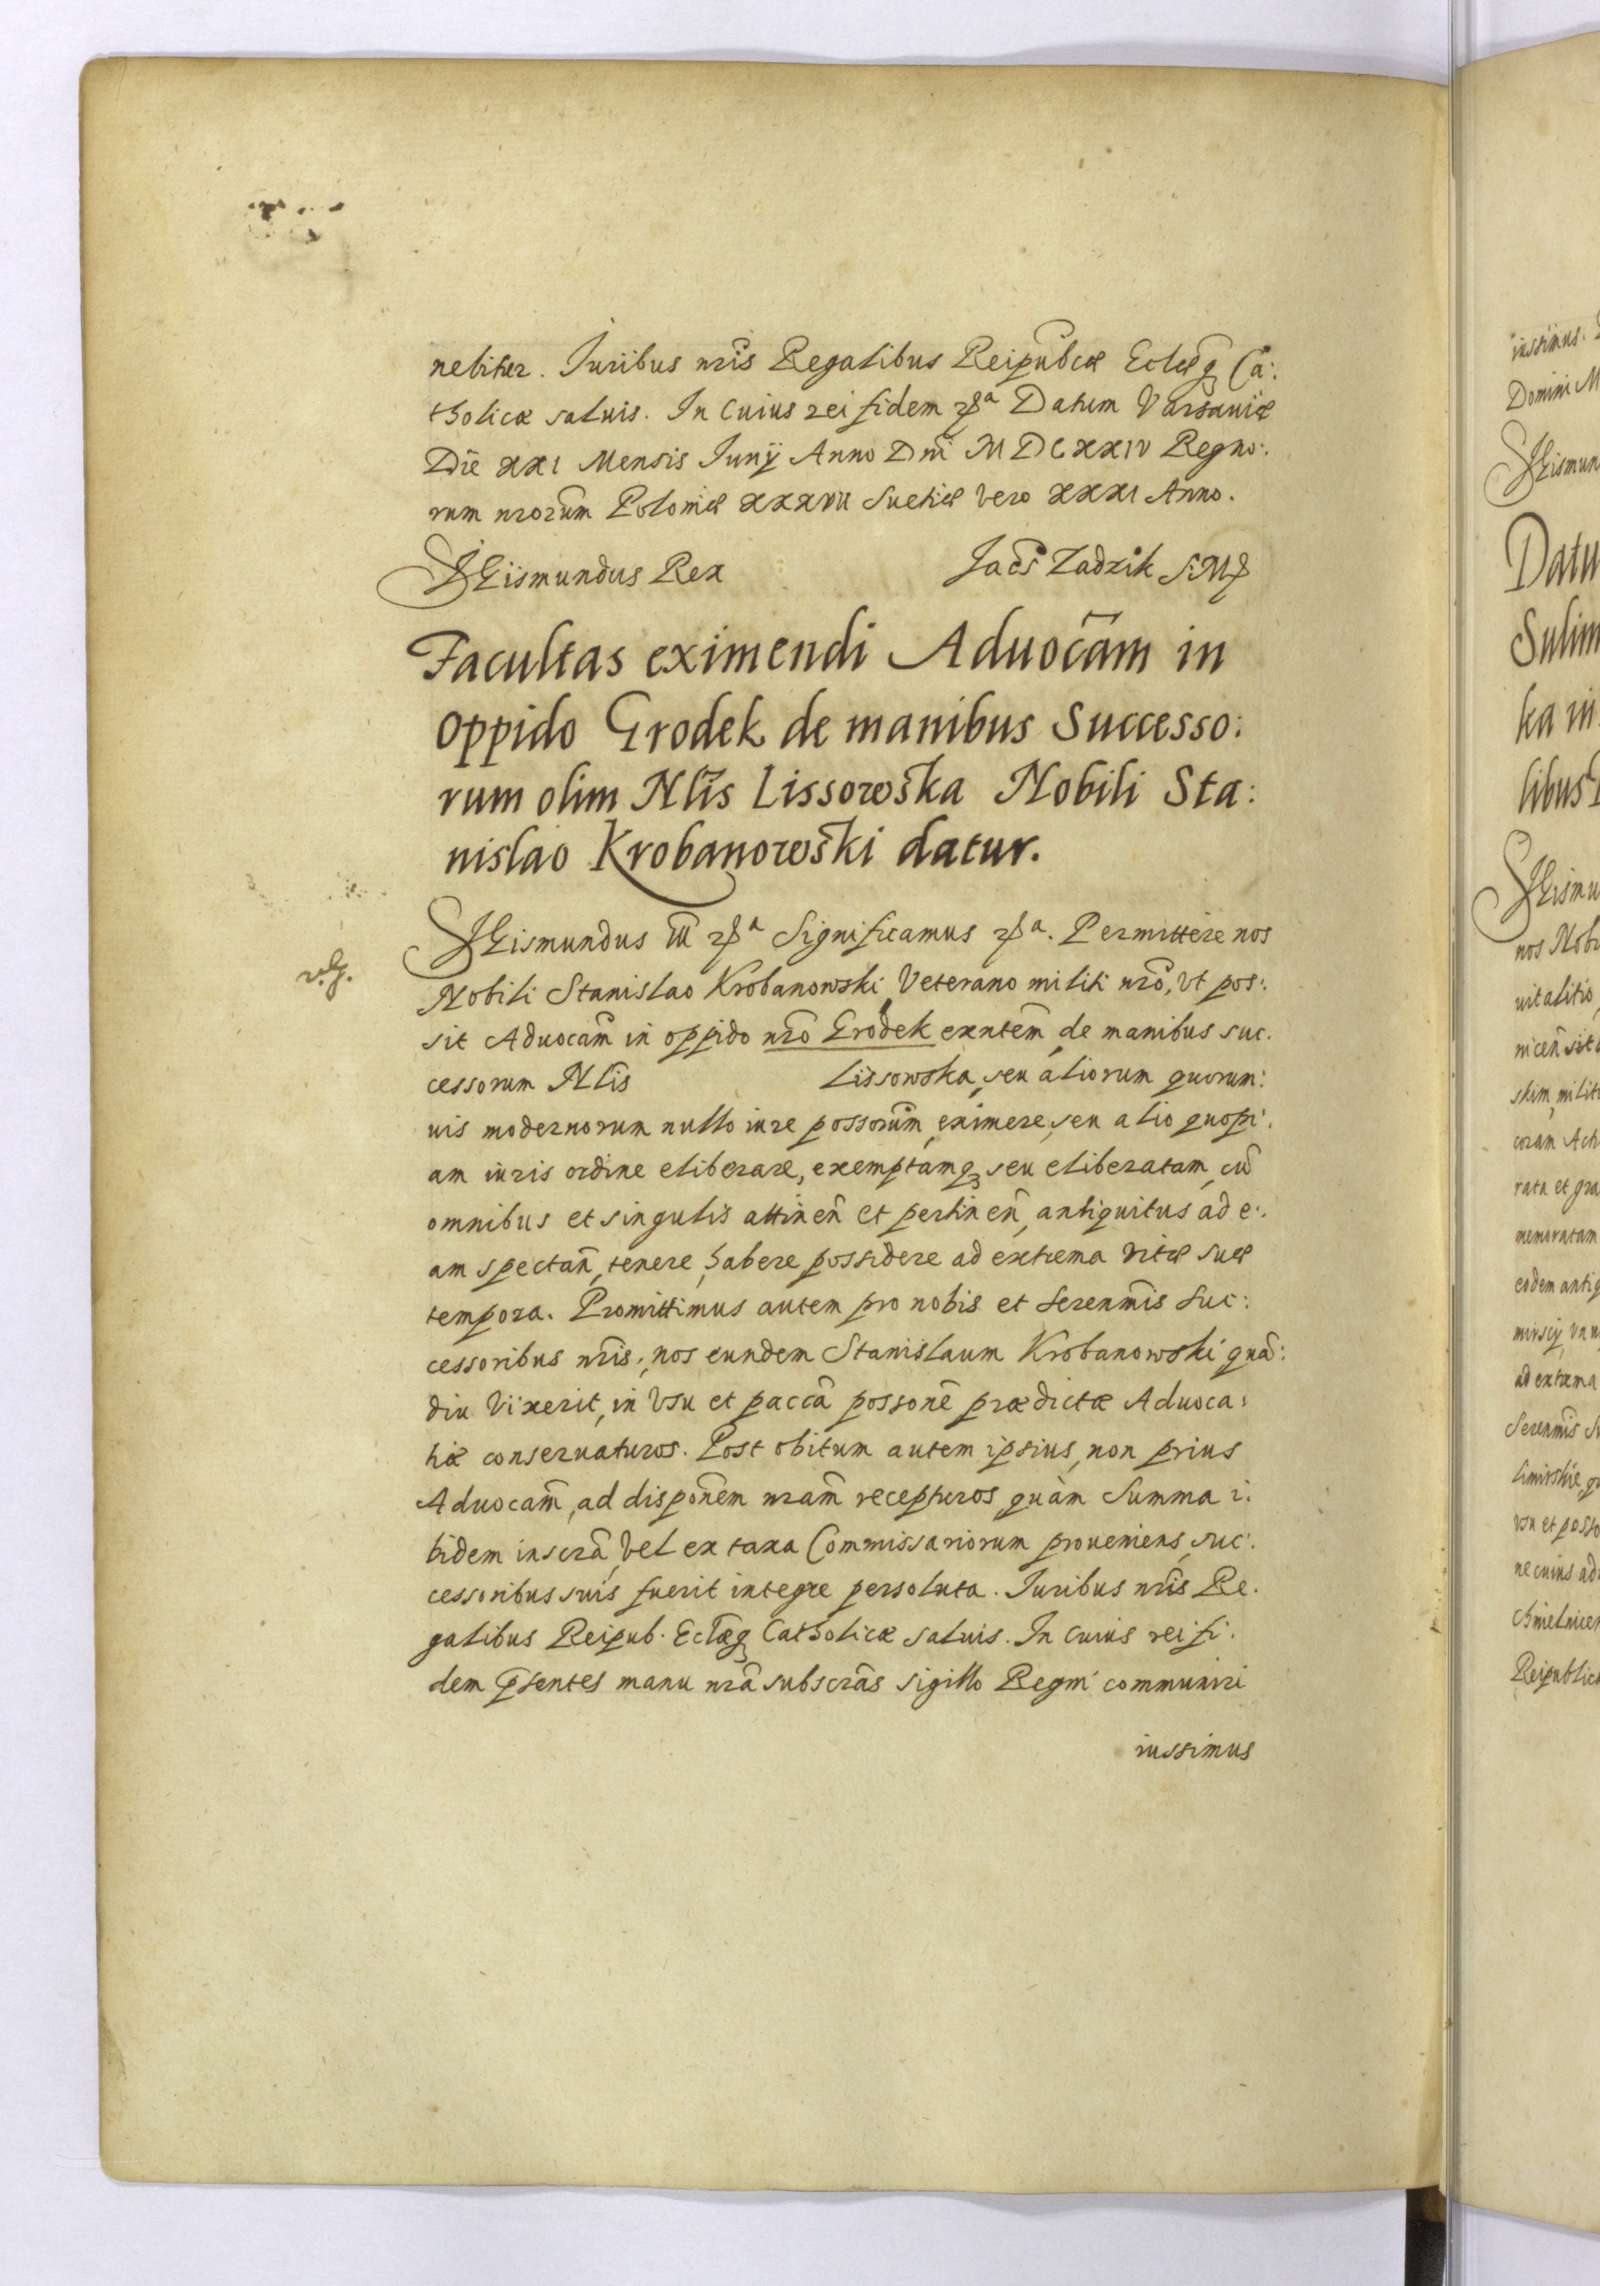 nebitur. Iuribus nr̃is Regalibus Reipub̃cæ Eclæq̃ Ca:
tholicæ saluis. In cuius rei fidem &a Datum Varsauiæ
Die XXI Mensis Iunij Anno Dni MDCXXIV Regno:
rum nrorum Poloniæ XXXVII Suetiæ vero XXXI Anno.
Sigismundus Rex Jacs Zadzik SMP
Facultas eximendi Aduocãm in
oppido Grodek de manibus Successo:
rum olim Nlis Lissowska Nobili Sta:
nislao Krobanowski datur.
Sigismundus III &a Significamus &a. Permittere nos
Nobili Stanislao Krobanowski, Veterano militi nr̃o, vt pos:
sit Aduocãm in oppido nr̃o Grodek exntem, de manibus suc.
cessorum Nlis Lissowska, seu aliorum quorum:
uis modernorum nullo iure possorũm, eximere, seu alio quopi:
am iuris ordine eliberare, exemptamq3 seu eliberatam, cũ
omnibus et singulis attineñ et pertineñ, antiquitus ad e:
am spectañ, tenere, habere, possidere ad extrema vitæ suæ
tempora. Promittimus autem pro nobis et Serenm̃is Suc:
cessoribus nr̃is, nos eundem Stanislaum Krobanowski, quã:
diu vixerit, in vsu et paccã possonẽ prædictæ Aduoca:
tiæ conseruaturos. Post obitum autem ipsius, non prius
Aduocãm, ad disponẽm nrãm recepturos, quàm Summa i:
bidem inscrã, vel ex taxa Commissariorum proueniens, suc:
cessoribus suis fuerit integre persoluta. Iuribus nr̃is Re.
galibus Reipub. Eclæq3 Catholicæ saluis. In cuius rei fi.
dem p̃sentes manu nrã subscrãs sigillo Regni communiri
iussimus